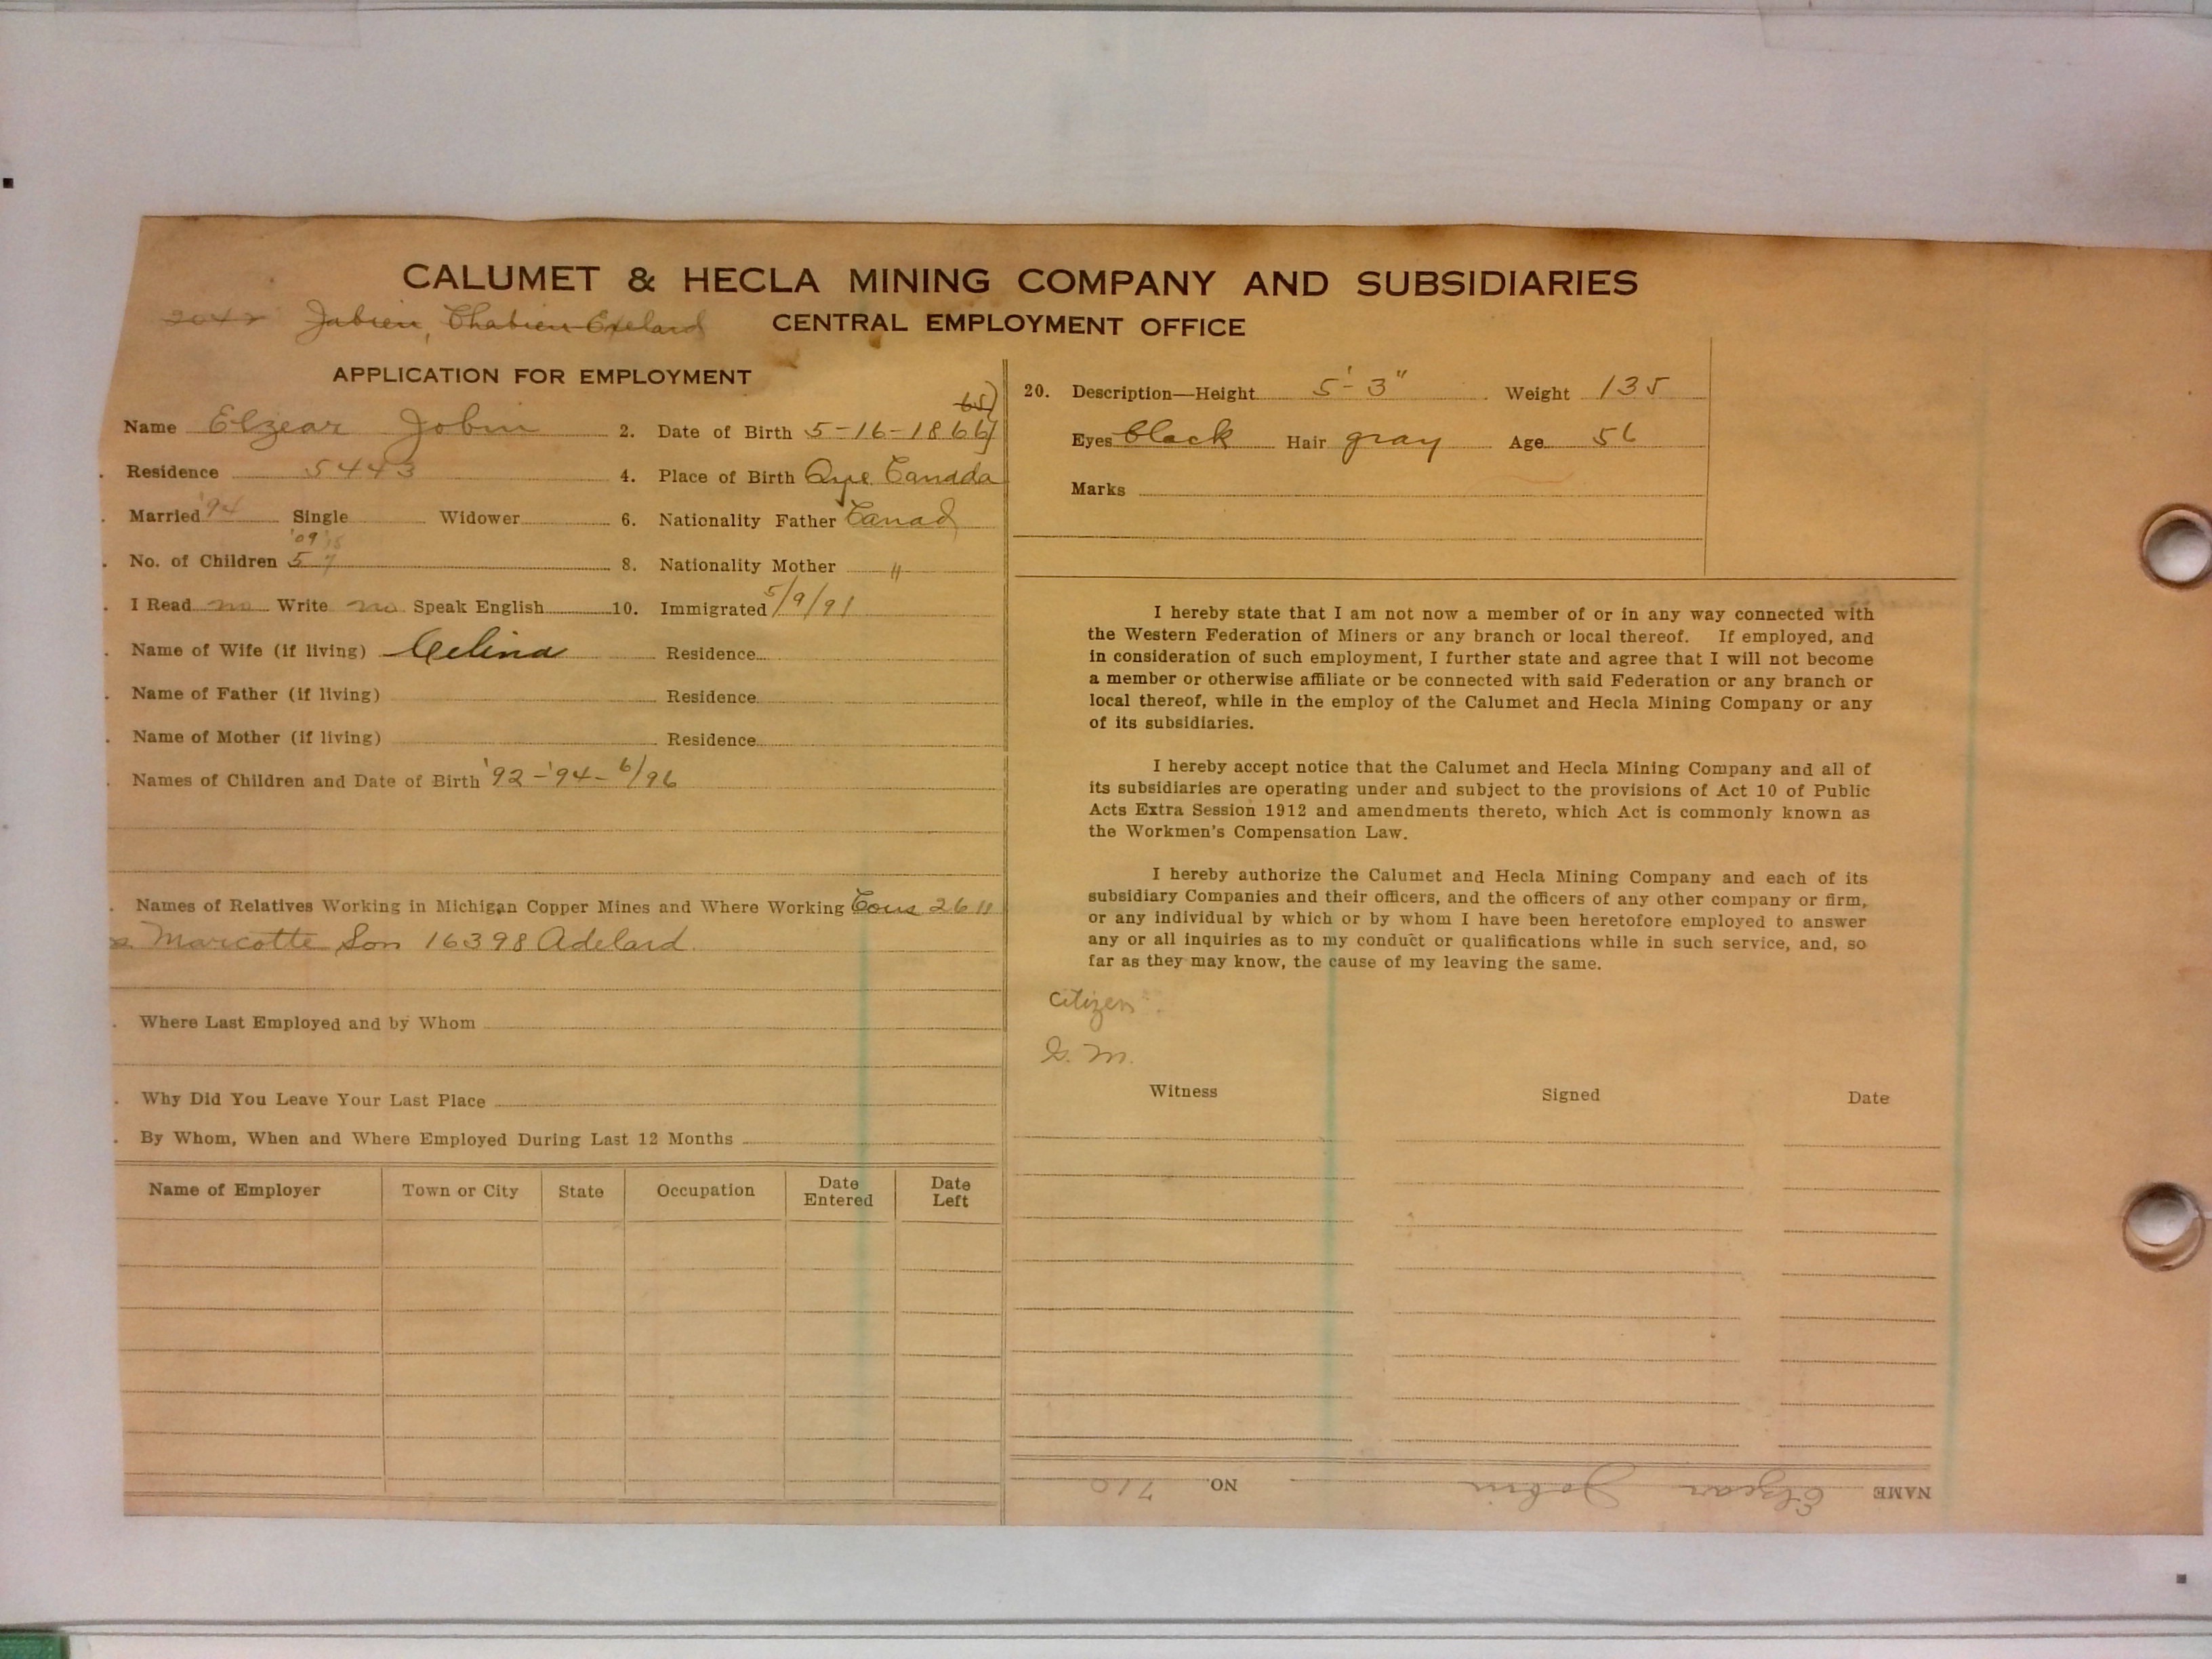 CALUMET & HECLA MINING COMPANY AND SUBSIDIARIES
2042 Jabien, Chabien Exelard CENTRAL EMPLOYMENT OFFICE
APPLICATION FOR EMPLOYMENT
Name Elzear Jobin 2. Date of Birth 5-16-1866 65
Residence 5443 4. Place of Birth Que Canada
Married '94 Single Widower 6. Nationality Father Canad
'09
No. of Children 5 7 8. Nationality Mother "
I Read no Write no Speak English 10. Immigrated 5/9/91
Name of Wife (if living) Celina Residence
Name of Father (if living) Residence
Name of Mother (if living) Residence
Names of Children and Date of Birth '92-'94-6/96
Names of Relatives Working in Michigan Copper Mines and Where Working Cous 2611
Marcotte Son 16398 Adelard.
Where Last Employed and by Whom
Why Did You Leave Your Last Place
By Whom, When and Where Employed During Last 12 Months
Name of Employer Town or City State Occupation Date Entered Date Left
20. Description—Height 5'-3" Weight 135
Eyes black Hair gray Age 56
Marks
I hereby state that I am not now a member of or in any way connected with
the Western Federation of Miners or any branch or local thereof. If employed, and
in consideration of such employment, I further state and agree that I will not become
a member or otherwise affiliate or be connected with said Federation or any branch or
local thereof, while in the employ of the Calumet and Hecla Mining Company or any
of its subsidiaries.
I hereby accept notice that the Calumet and Hecla Mining Company and all of
its subsidiaries are operating under and subject to the provisions of Act 10 of Public
Acts Extra Session 1912 and amendments thereto, which Act is commonly known as
the Workmen's Compensation Law.
I hereby authorize the Calumet and Hecla Mining Company and each of its
subsidiary Companies and their officers, and the officers of any other company or firm,
or any individual by which or by whom I have been heretofore employed to answer
any or all inquiries as to my conduct or qualifications while in such service, and, so
far as they may know, the cause of my leaving the same.
Citizen
G. M.
Witness Signed Date
NAME Elzear Jobin NO. 710